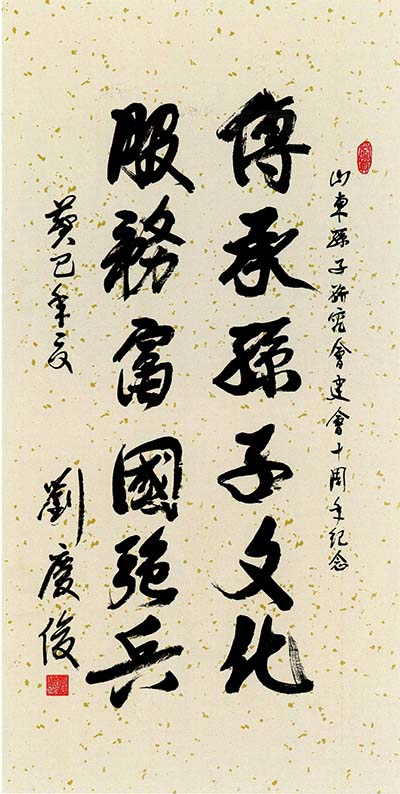 山東孫子研究會建會十周年紀念
傳承孫子文化
服務富國強兵
癸巳年夏
劉慶俊